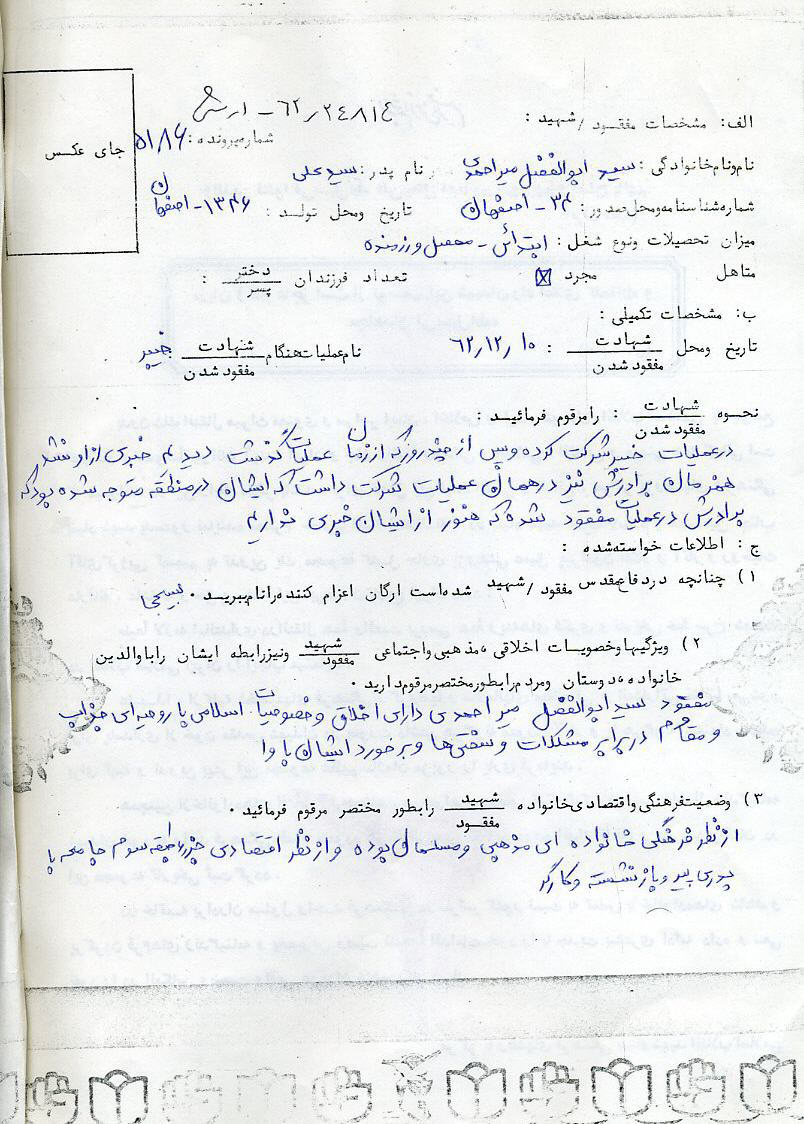 ۶۲٫۲۴۸۱۴ - ارتش
الف: مشخصات مفقود / شهید :
شماره پرونده : ۵۱۸۶
جای عکس
نام ونام خانوادگی : سید ابوالفضل میراحمدی نام پدر: سیدعلی
شماره شناسنامه ومحل صدور : ۳۴ - اصفهان تاریخ ومحل تولد : ۱۳۴۶ - اصفهان
میزان تحصیلات ونوع شغل : ابتدائی - محصل ورزمنده
متاهل مجرد ☒ تعداد فرزندان دختر / پسر :
ب: مشخصات تکمیلی :
تاریخ ومحل شهادت / مفقود شدن : ۶۲٫۱۲٫۱۰ نام عملیات هنگام شهادت / مفقود شدن خیبر
نحوه شهادت / مفقود شدن : رامرقوم فرمائید :
درعملیات خیبر شرکت کرده وپس از چند روزکه از زمان عملیات گذشت دیدیم خبری از او نشد
همزمان برادرش نیز درهمان عملیات شرکت داشت که ایشان درمنطقه متوجه شده بودکه
برادرش درعملیات مفقود شده که هنوز از ایشان خبری نداریم
ج : اطلاعات خواسته شده :
۱) چنانچه دردفاع مقدس مفقود / شهید شده است ارگان اعزام کننده رانام ببرید . بسیج
۲) ویژگیها وخصوصیات اخلاقی ، مذهبی واجتماعی شهید / مفقود ونیزرابطه ایشان راباوالدین
خانواده ، دوستان ومردم رابطور مختصر مرقوم دارید .
مفقود سید ابوالفضل میر احمدی دارای اخلاق و خصوصیات اسلامی با روحیه ای جذاب
و مقاوم در برابر مشکلات و سختی ها و برخورد ایشان با وا
۳) وضعیت فرهنگی واقتصادی خانواده شهید / مفقود رابطور مختصر مرقوم فرمائید .
از نظر فرهنگی خانواده ای مذهبی ومسلمان بوده واز نظر اقتصادی جزء طبقه سوم جامعه با
پدری پیر و بازنشسته وکارگر